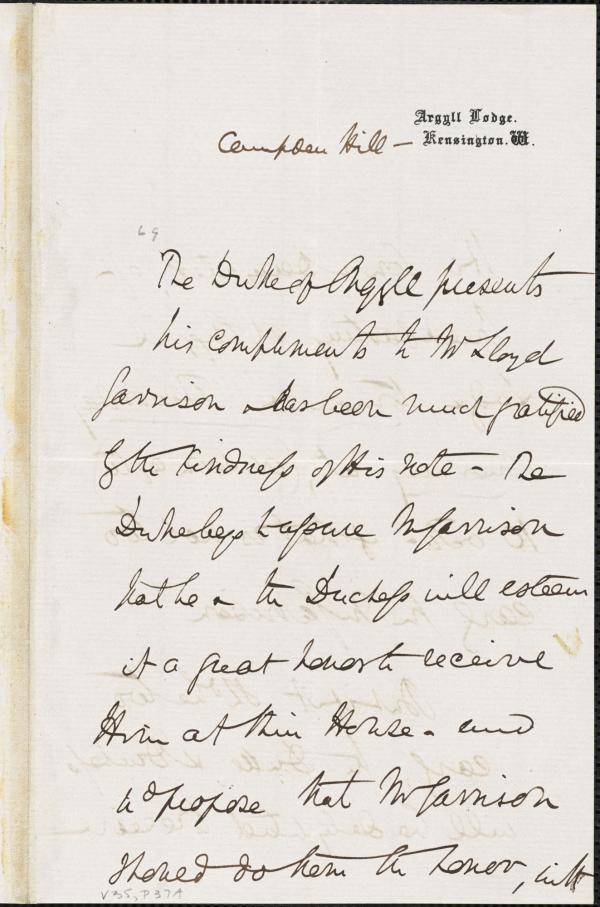 Argyll Lodge.
Campden Hill — Kensington. W.
69
The Duke of Argyll presents
his compliments to Mr Lloyd
Garrison & has been much gratified
by the kindness of His note – The
Duke begs to assure Mr Garrison
that he & the Duchess will esteem
it a great honor to receive
Him at their House – and
wd propose that Mr Garrison
should do them the honor, with
V35, P37A